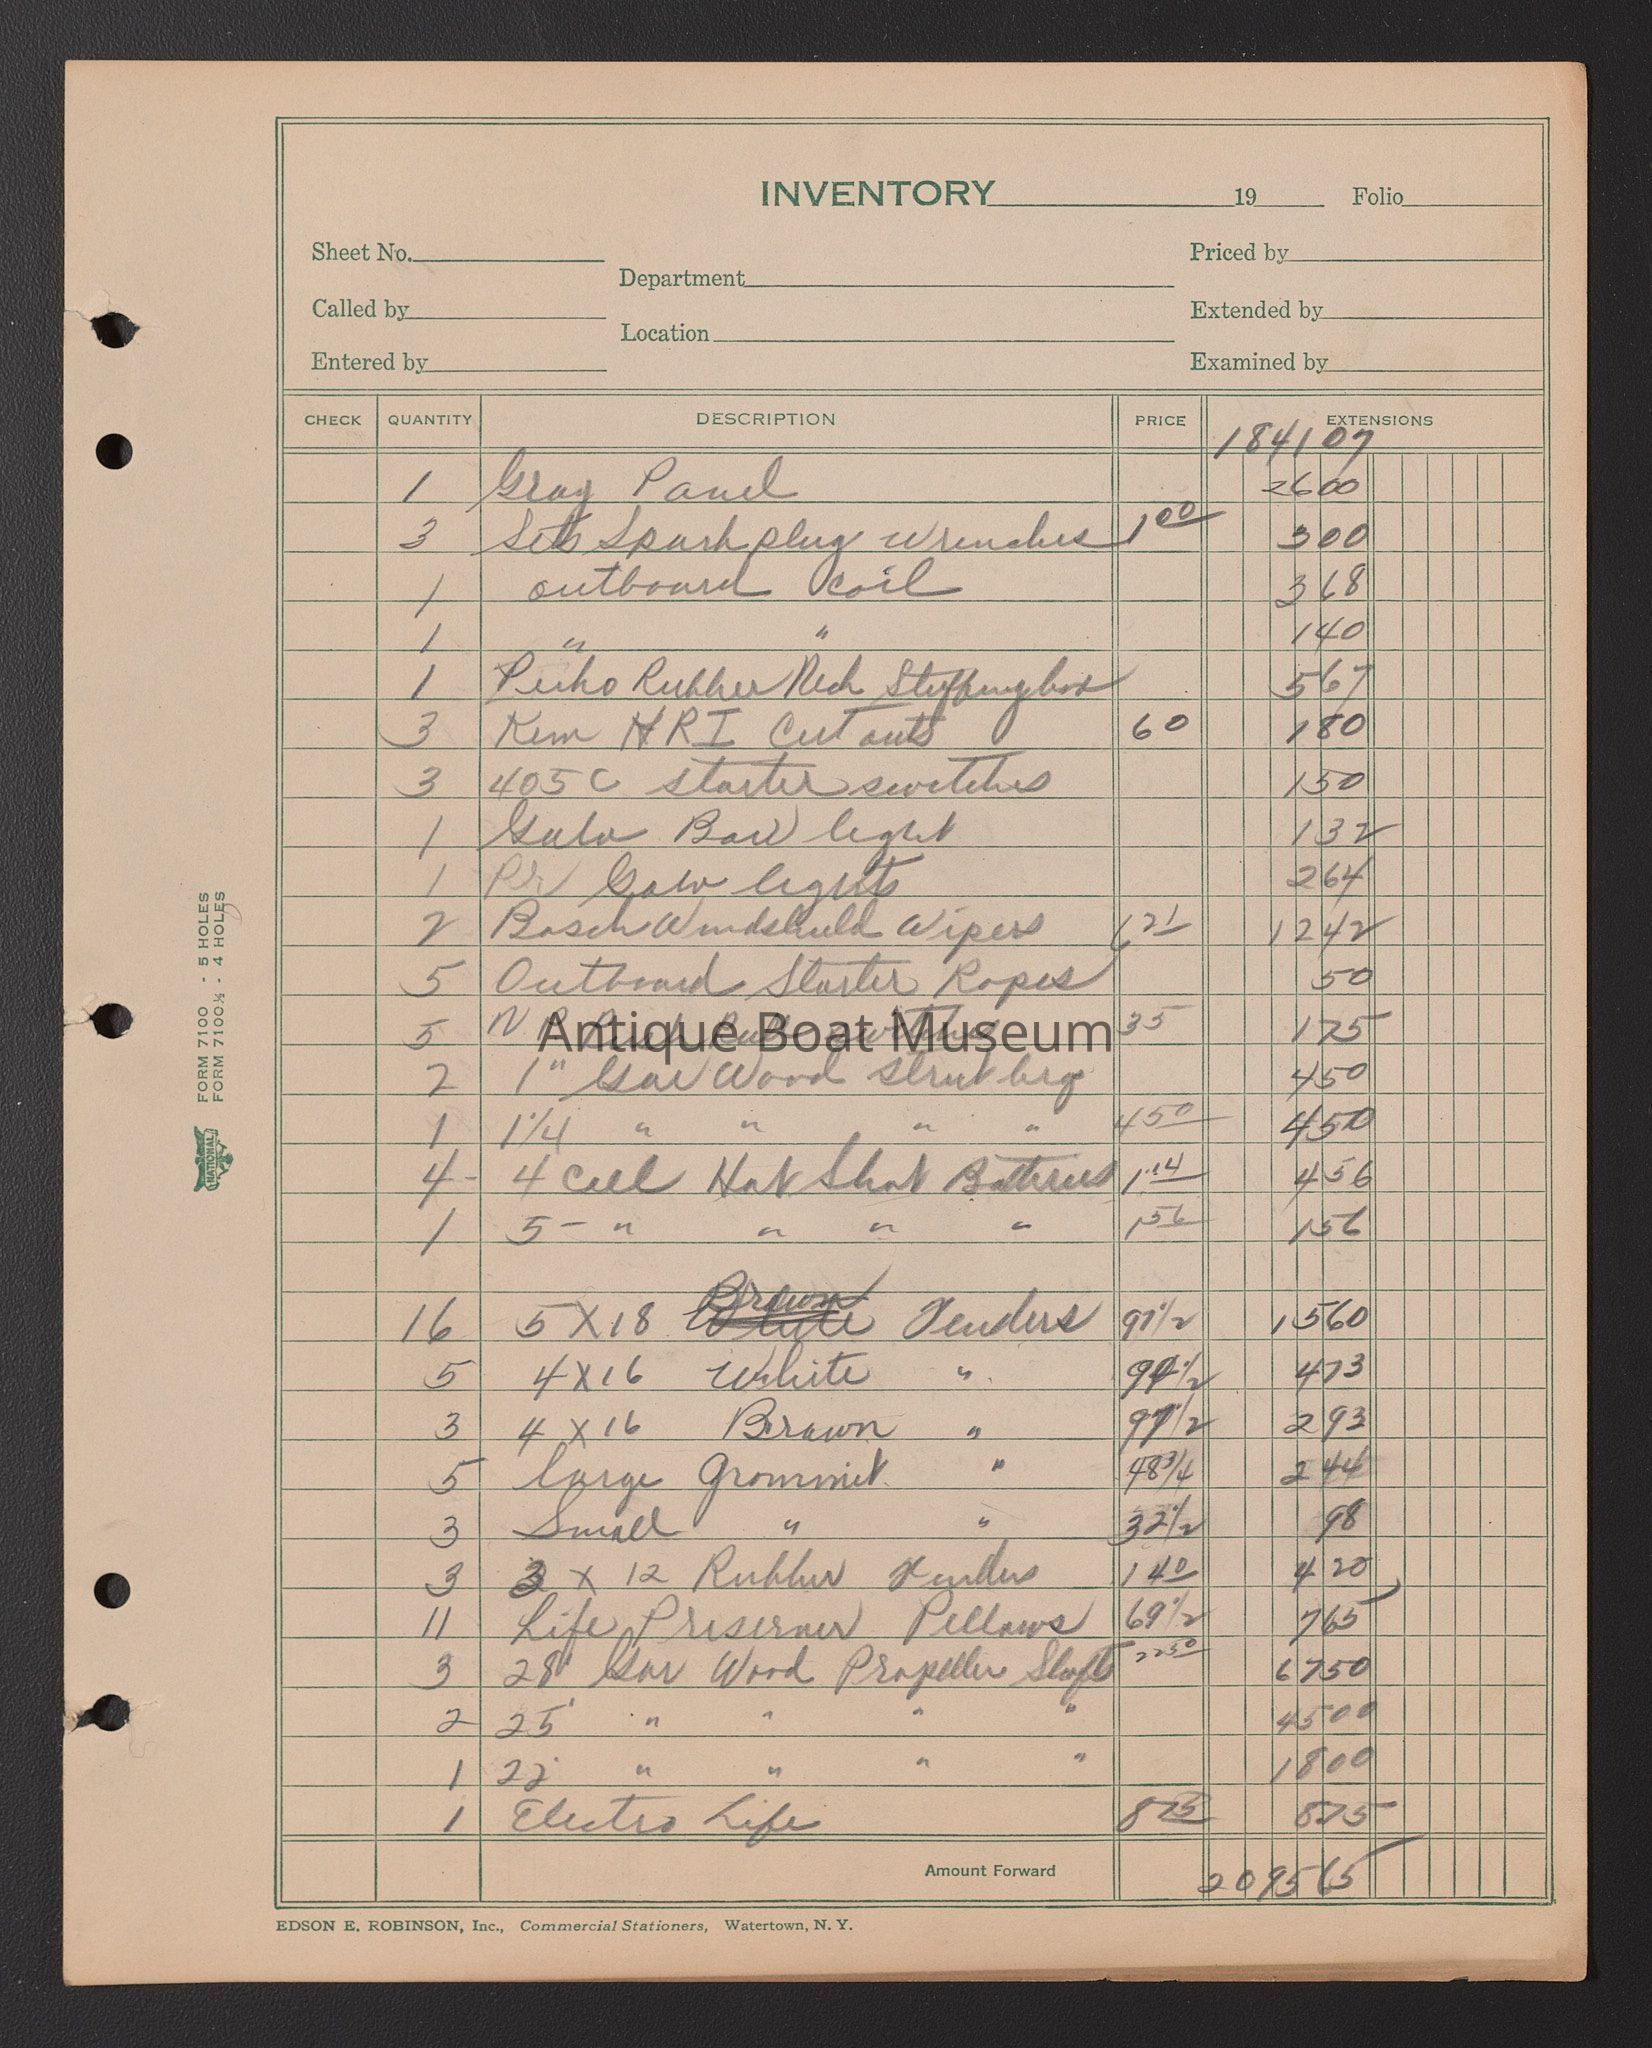 INVENTORY 19 Folio
Sheet No. Priced by
Department
Called by Extended by
Location
Entered by Examined by
CHECK QUANTITY DESCRIPTION PRICE EXTENSIONS
184107
1 Gray Panel 2600
3 Sets Sparkplug wrenches 1 00 300
1 outboard coil 368
1 " " 140
1 Rubber Neck Stuffingbox 567
3 Kem HRI Cut outs 60 180
3 405 C starter switches 150
1 Bow light 132
1 Pr lights 264
2 Bosch Windshield Wipers 6 21 1242
5 Outboard Starter Ropes 50
5 N 35 175
Antique Boat Museum
2 1" Gar Wood strut brg 450
1 1 1/4 " " " " 4 50 450
4 - 4 Cell Hot Shot Batteries 1.14 456
1 5 - " " " " 1 56 156
16 5 X 18 Brown Fenders 97 1/2 1560
5 4 X 16 White " 94 1/2 473
3 4 X 16 Brown " 97 1/2 293
5 Large Grommit " 48 3/4 244
3 Small " " 32 1/2 98
3 3 X 12 Rubber Fenders 1 40 420
11 Life Preserver Pillows 69 1/2 765
3 28' Gar Wood Propeller Shaft 22 50 6750
2 25' " " " " 4500
1 22' " " " " 1800
1 Electro Life 8 75 875
Amount Forward 209565
EDSON E. ROBINSON, Inc., Commercial Stationers, Watertown, N. Y.
FORM 7100 - 5 HOLES
FORM 7100½ - 4 HOLES
NATIONAL